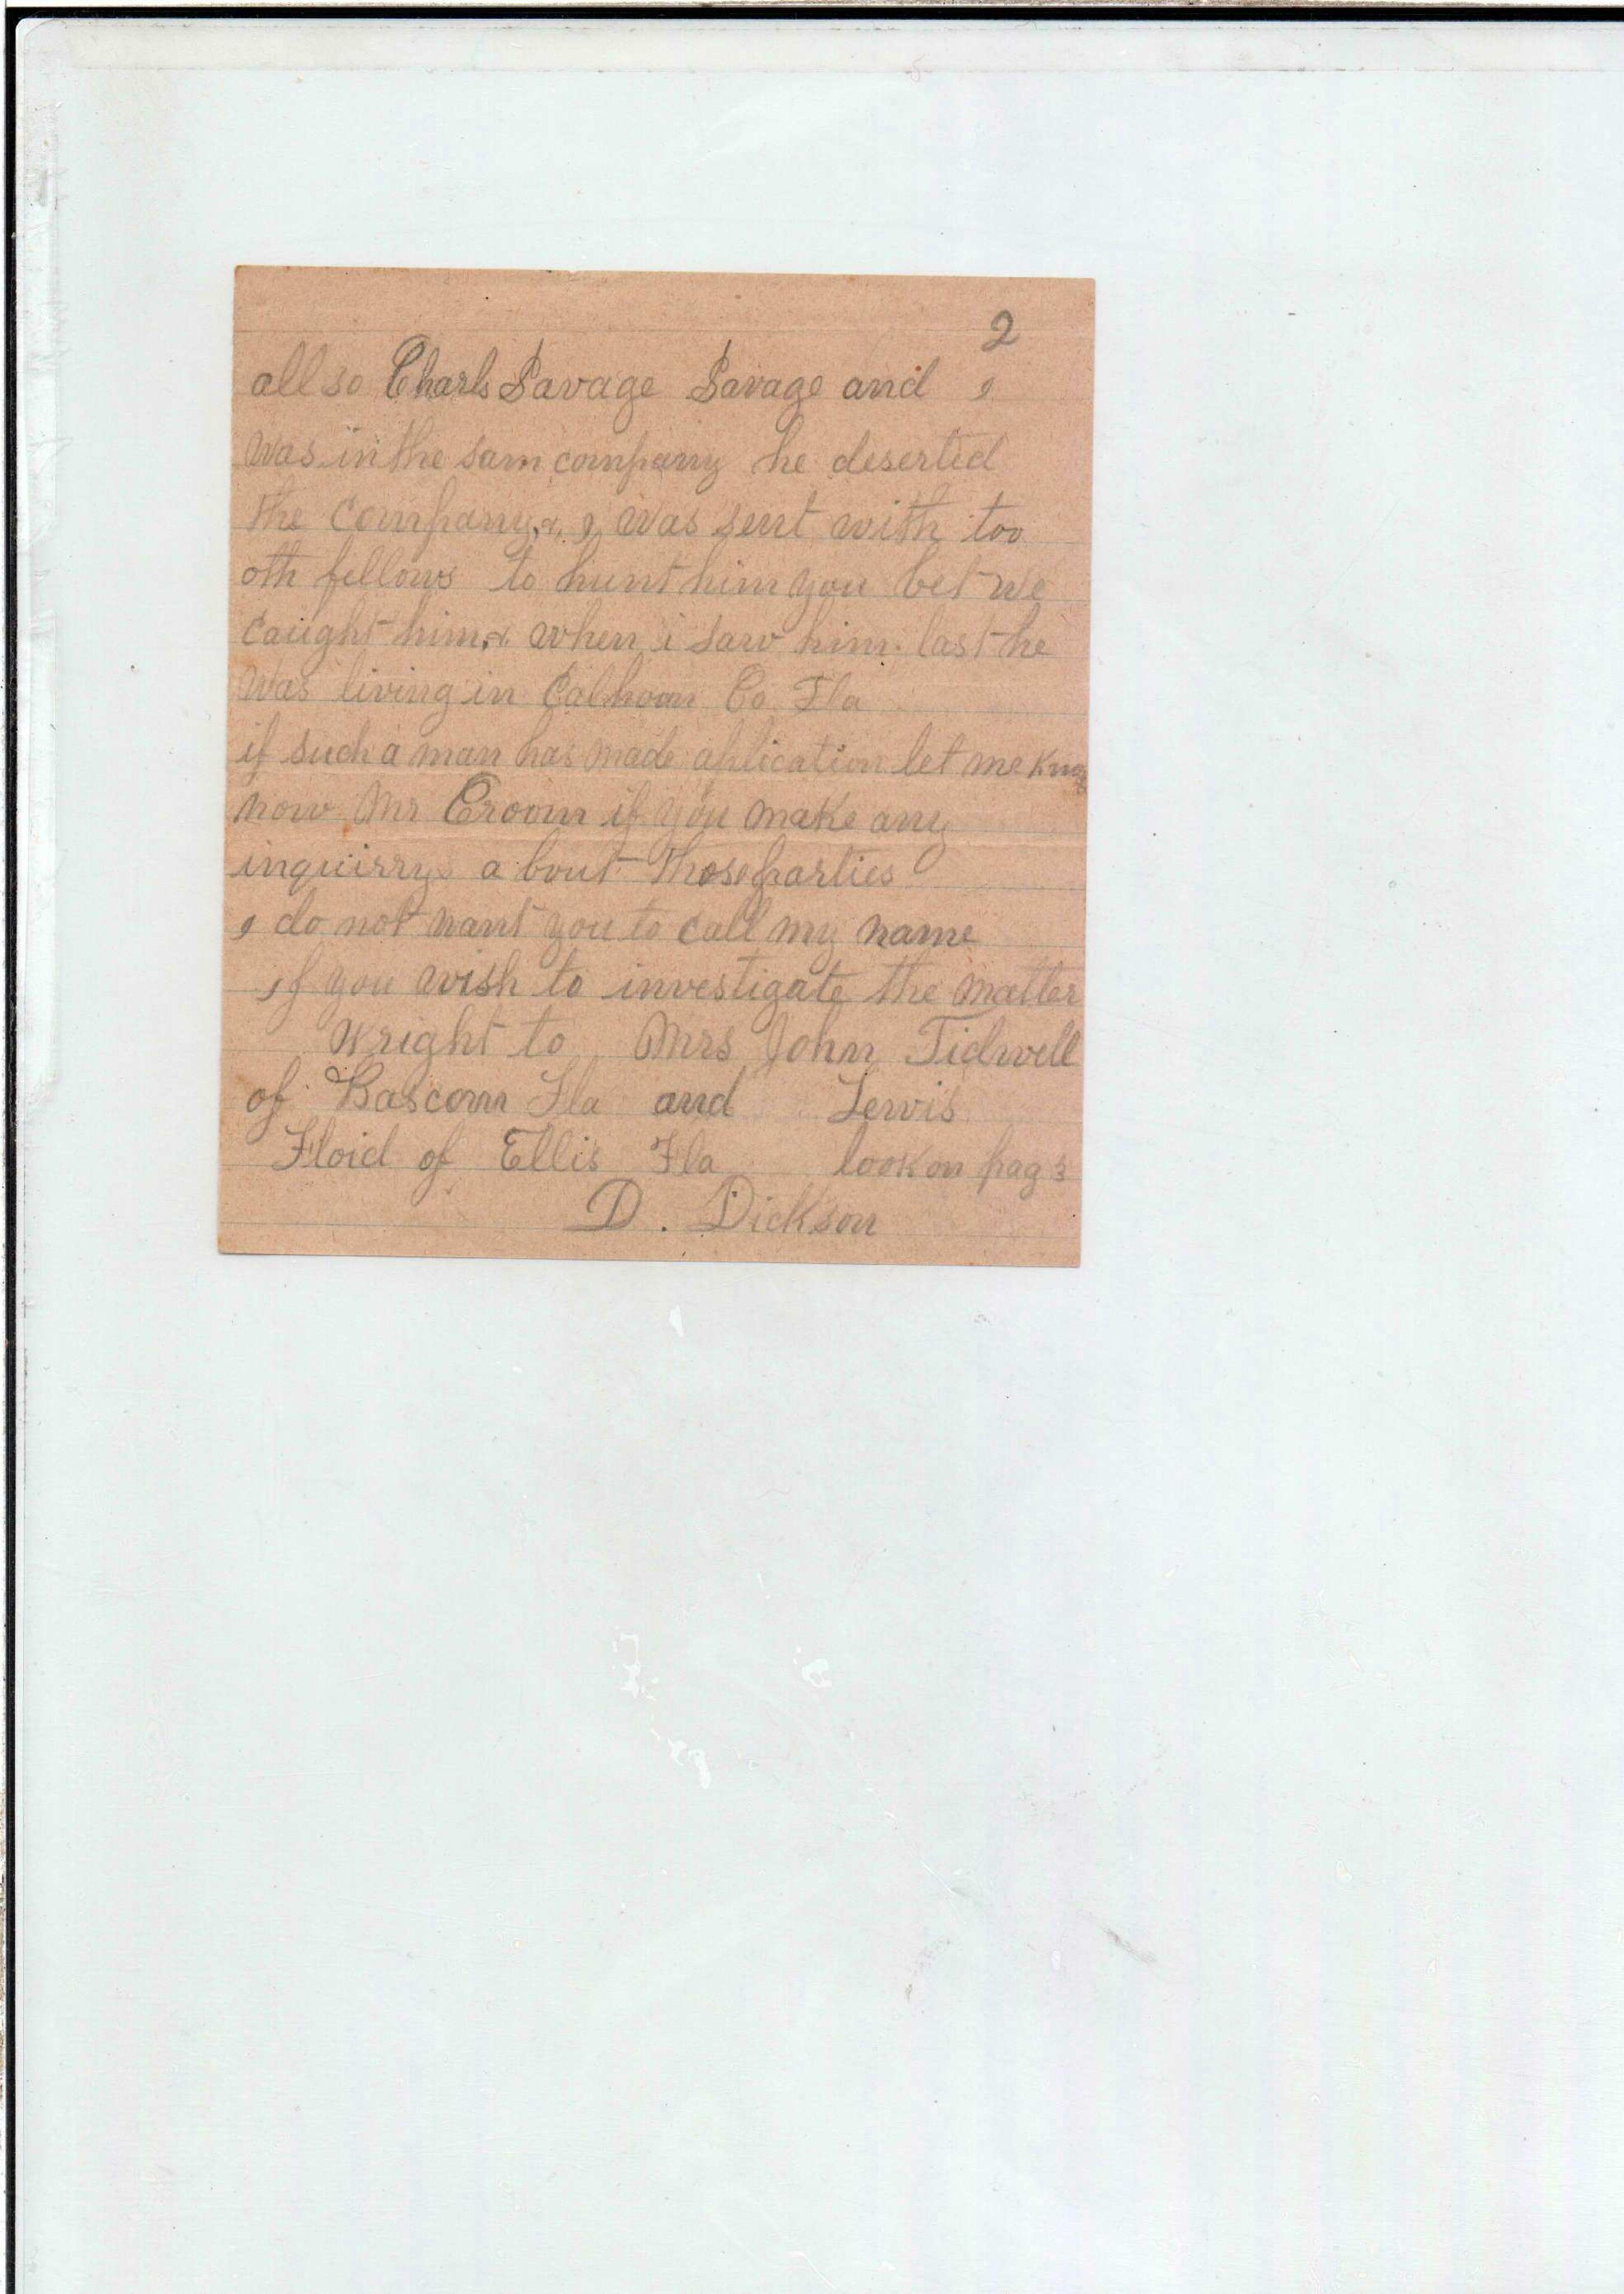 2
all so Charls Savage Savage and i
was in the sam company he deserted
the company, & i was sent with too
oth fellows to hunt him you bet we
caught him, & when i saw him last he
was living in Calhoun Co Fla
if such a man has made aplication let me know
now Mr Croom if you make any
inquirry a bout those parties
i do not want you to call my name
if you wish to investigate the matter
wright to Mrs John Tidwell
of Bascom Fla and Lewis
Floid of Ellis Fla look on pag 3
D. Dickson